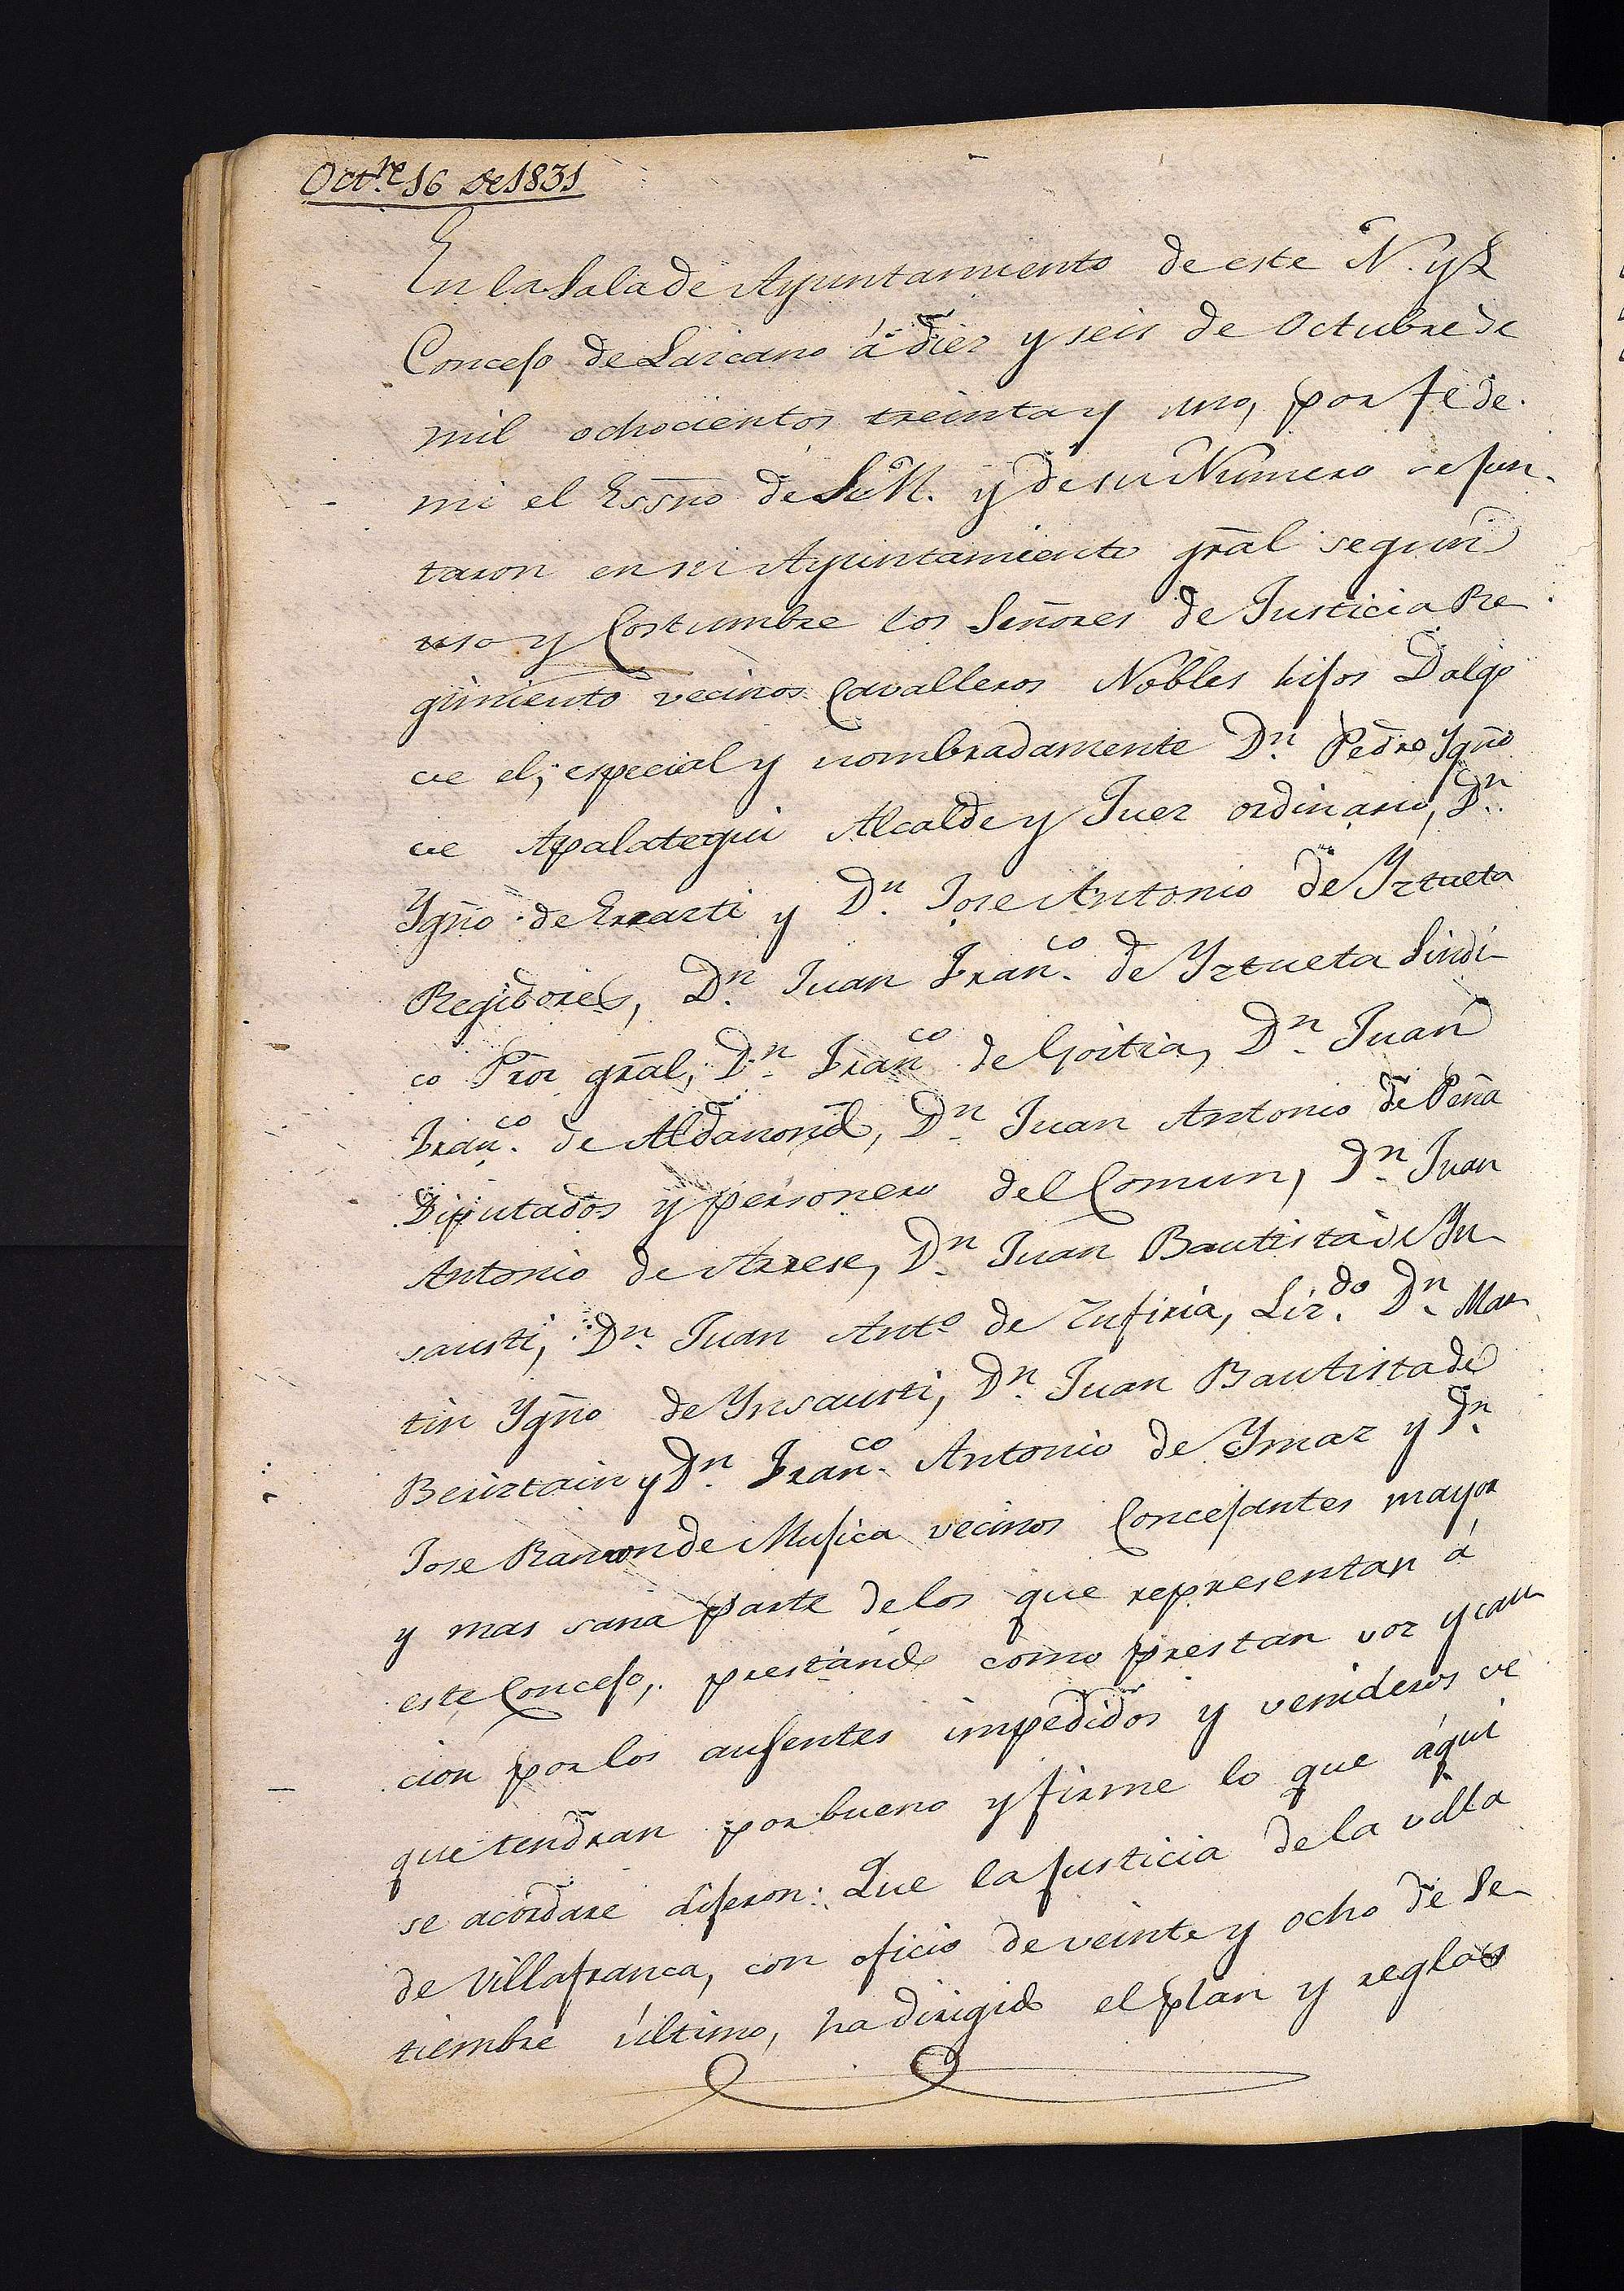 Oct.re 16 de 1831
En la Sala de Ayuntamiento de este N. y L
Concejo de Lazcano á diez y seis de Octubre de
mil ochocientos treinta y uno, por fe de
mi el Essno de S. M. y de su Numero se jun-
taron en su Ayuntamiento gral segun
uso y Costumbre los Señores de Justicia Re
gimiento vecinos Cavalleros Nobles hijos Dalgo
de el, especial y nombradamente Dn. Pedro Ygno
de Apalategui Alcalde y Juez ordinario, Dn.
Ygno de Errarti y Dn. Jose Antonio de Yztueta
Regidores, Dn. Juan Franco. de Yztueta Sindi-
co Pror gral, Dn. Franco de Goitia, Dn. Juan
Franco. de Aldanond, Dn. Juan Antonio de Peña
Diputados y personero del Comun, Dn. Juan
Antonio de Arrese, Dn. Juan Bautista de Yn-
sausti, Dn. Juan Anto de Zufiria, Liz.do Dn. Mar
tin Ygno de Ynsausti, Dn. Juan Bautista de
Beriztain y Dn. Franco. Antonio de Ymaz y Dn.
Jose Ramon de Mujica vecinos Concejantes mayor
y mas sana parte de los que representan á
este Concejo, prestando como prestan voz y cau-
cion por los ausentes impedidos y venideros de
que tendran por bueno y firme lo que áqui
se acordare dijeron: Que la justicia de la villa
de Villafranca, con oficio de veinte y ocho de Se-
tiembre último, ha dirigido el plan y reglas